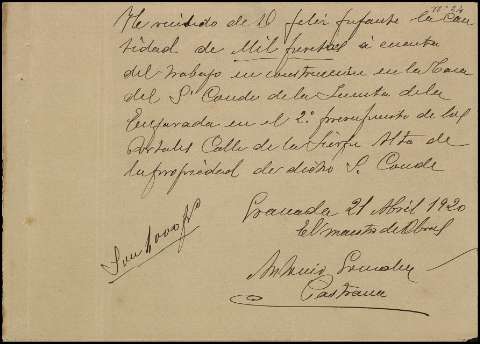 nº 24
He recibido de D Felix Infante la can
tidad de Mil pesetas á cuenta
del trabajo en construccion en la Casa
del Sr Conde de la Puerta de la
en el 2º presupuesto de los
Calle de la Alta de
la propiedad de dicho S. Conde
Granada 21 Abril 1920
El maestro de Obras
Son 1000 pts
Antonio Gonzalez
Pastrana